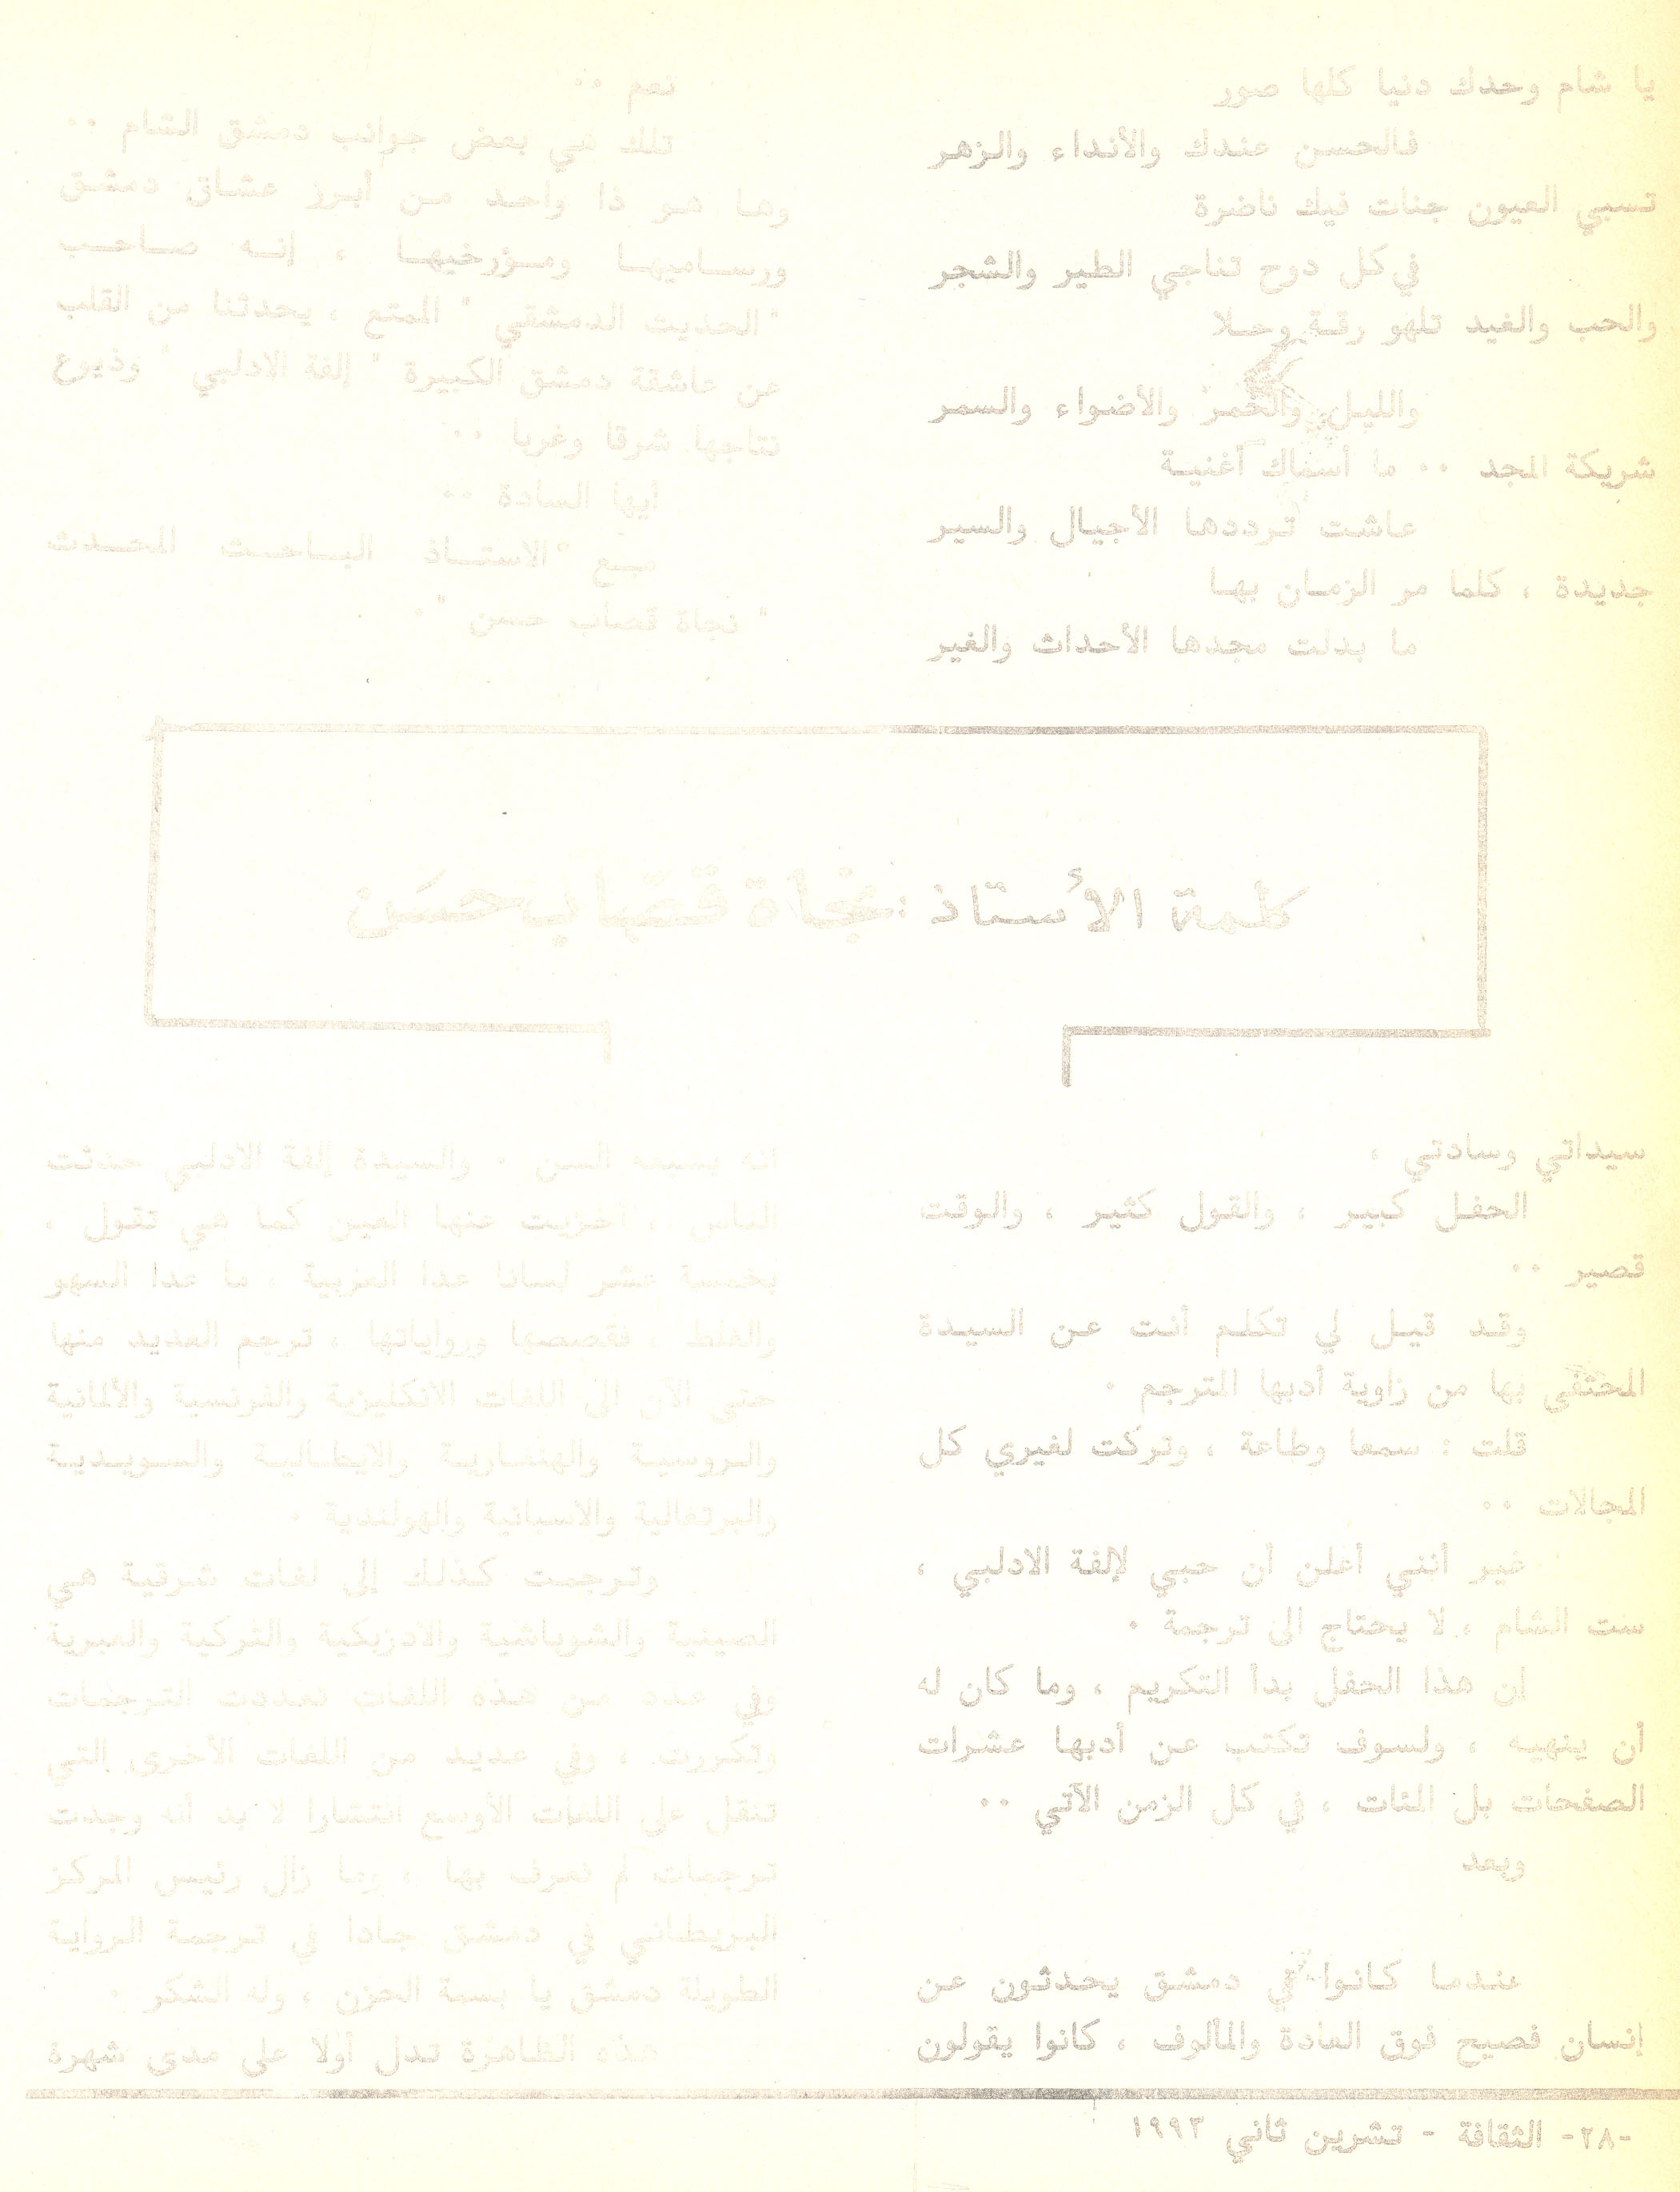 يا شام وحدك دنيا كلها صور
فالحسن عندك والأنداء والزهر
تسبي العيون جنات فيك ناضرة
في كل دوح تناجي الطير والشجر
والحب والغيد تلهو رقة وحلا
والليل والخمر والأضواء والسمر
شريكة المجد ٠٠ ما أسماك أغنية
عاشت ترددها الأجيال والسير
جديدة ، كلما مر الزمان بها
ما بدلت مجدها الأحداث والغير
نعم ٠٠
تلك هي بعض جوانب دمشق الشام ٠٠
وها هو ذا واحد من أبرز عشاق دمشق
ورساميها ومؤرخيها ، إنه صاحب
" الحديث الدمشقي " الممتع ، يحدثنا من القلب
عن عاشقة دمشق الكبيرة " إلفة الادلبي " وذيوع
نتاجها شرقا وغربا ٠٠
أيها السادة ٠٠
مع الاستاذ الباحث المحدث
" نجاة قصاب حسن " ٠
كلمة الأستاذ : نجاة قصّاب حسَن
سيداتي وسادتي ،
الحفل كبير ، والقول كثير ، والوقت
قصير ٠٠
وقد قيل لي تكلم أنت عن السيدة
المحتفى بها من زاوية أدبها المترجم ٠
قلت : سمعا وطاعة ، وتركت لغيري كل
المجالات ٠٠
غير أنني أعلن أن حبي لإلفة الادلبي ،
ست الشام ، لا يحتاج الى ترجمة ٠
إن هذا الحفل بدأ التكريم ، وما كان له
أن ينهيه ، ولسوف تكتب عن أدبها عشرات
الصفحات بل المئات ، في كل الزمن الآتي ٠٠
وبعد
عندما كانوا في دمشق يحدثون عن
إنسان فصيح فوق العادة والمألوف ، كانوا يقولون
انه بسبعه السن ٠ والسيدة إلفة الادلبي حدثت
الناس ، أخزيت عنها العين كما هي تقول ،
بخمسة عشر لسانا عدا العربية ، ما عدا السهو
والغلط ، فقصصها ورواياتها ، ترجم العديد منها
حتى الآن الى اللغات الانكليزية والفرنسية والألمانية
والروسية والهنغارية والايطالية والسويدية
والبرتغالية والاسبانية والهولندية ٠
وترجمت كذلك إلى لغات شرقية هي
الصينية والشوباشية والاذربكية والتركية والعبرية
وفي عدد من هذه اللغات تعددت الترجمات
وتكررت ، وفي عديد من اللغات الأخرى التي
تنقل على اللغات الأوسع انتشارا لا بد أنه وجدت
ترجمات لم نعرف بها ، وما زال رئيس المركز
البريطاني في دمشق جادا في ترجمة الرواية
الطويلة دمشق يا بسمة الحزن ، وله الشكر ٠
هذه الظاهرة تدل أولا على مدى شهرة
-٢٨- الثقافة - تشرين ثاني ١٩٩٣